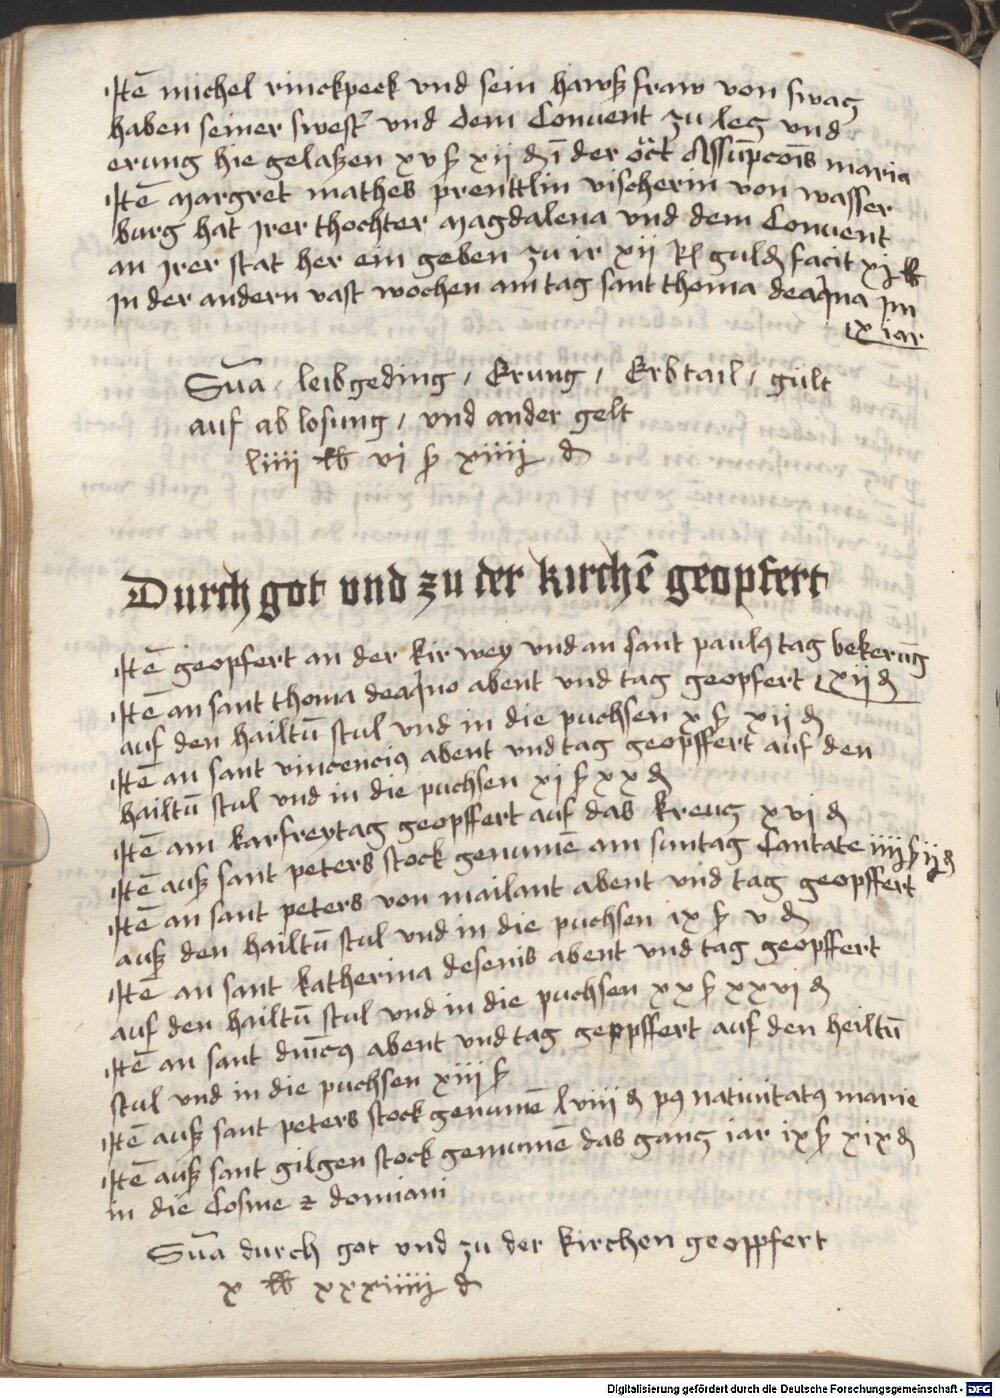 Itē michel rinckpeck vnd sein hawsfraw von swag
haben seiner swest' vnd dem Conuent zu lecz vnd
erung hie gelaßen xv ß xij d ī der oct Assūpcōis maria
Itē Margret mathes prenttlin vischerin von wasser
burg hat Irer thochter Magdalena vnd dem Conuent
an Irer stat her ein geben zu ir xij Rl guld facit xj lb
In der andern vast wochen am tag sant thoma deaq̄na Im
lx iar
Sūa / leibgeding / Erung / Erbtail / gült
auf ab losung / vnd ander gelt
liiij lb vj ß xiiij d
Durch got vnd zu der kirchē geopfert
Itē geopfert an der kirwey vnd an sant pauls tag bekerūg
lxij d
Itē an sant thoma deaq̄no abent vnd tag geopfert
auf den hailtū stul vnd in die puchsen x ß xij d
Itē an sant vincencius abent vnd tag geopffert auf den
hailtū stul vnd in die puchsen xj ß xx d
Itē am karfreytag geopffert auf das kreucz xvj d
Itē auß sant peters stock genumē am suntag Cantate iiij ß ij d
Itē an sant peters von mailant abent vnd tag geopffert
auf den hailtū stul vnd in die puchsen ix ß v d
Itē an sant katherina desenis abent vnd tag geopffert
auf den hailtū stul vnd in die puchsen xx ß xxvj d
Itē an sant dm̄cus abent vnd tag geppffert auf den heiltū
stul vnd in die puchsen xiij ß
Itē auß sant peters stock genumē lviij d p9 natiuitatis marie
Itē auß sant gilgen stock genumē das gancz iar ix ß xix d
in die Cosme z domiani
Sūa durch got vnd zu der kirchen geoppfert
x lb xxxiiij d
Digitalisierung gefördert durch die Deutsche Forschungsgemeinschaft - DFG